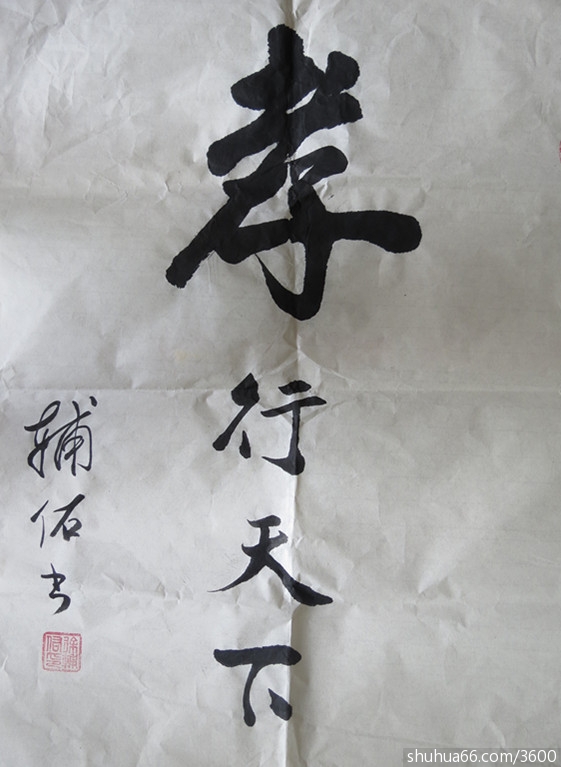 孝行天下
辅佑书
shuhua66.com/3600